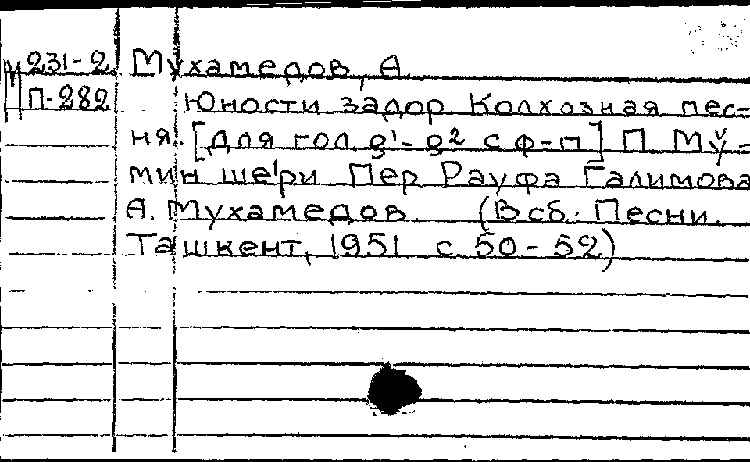 М 231-2 Мухамедов, А.
П-282 Юности задор. Колхозная пес-
ня. [Для гол. g¹-g² с ф-п] П. Му-
мин шери. Пер. Рауфа Галимова
А. Мухамедов. (В сб.: Песни.
Ташкент, 1951 с. 50-52)